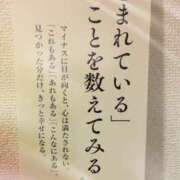 まれている」
ことを数えてみる
マイナスに目が向くと、心は満たされない。
「これもある」「あれもある」「こんなにある」
見つかった分だけ、きっと幸せになる。